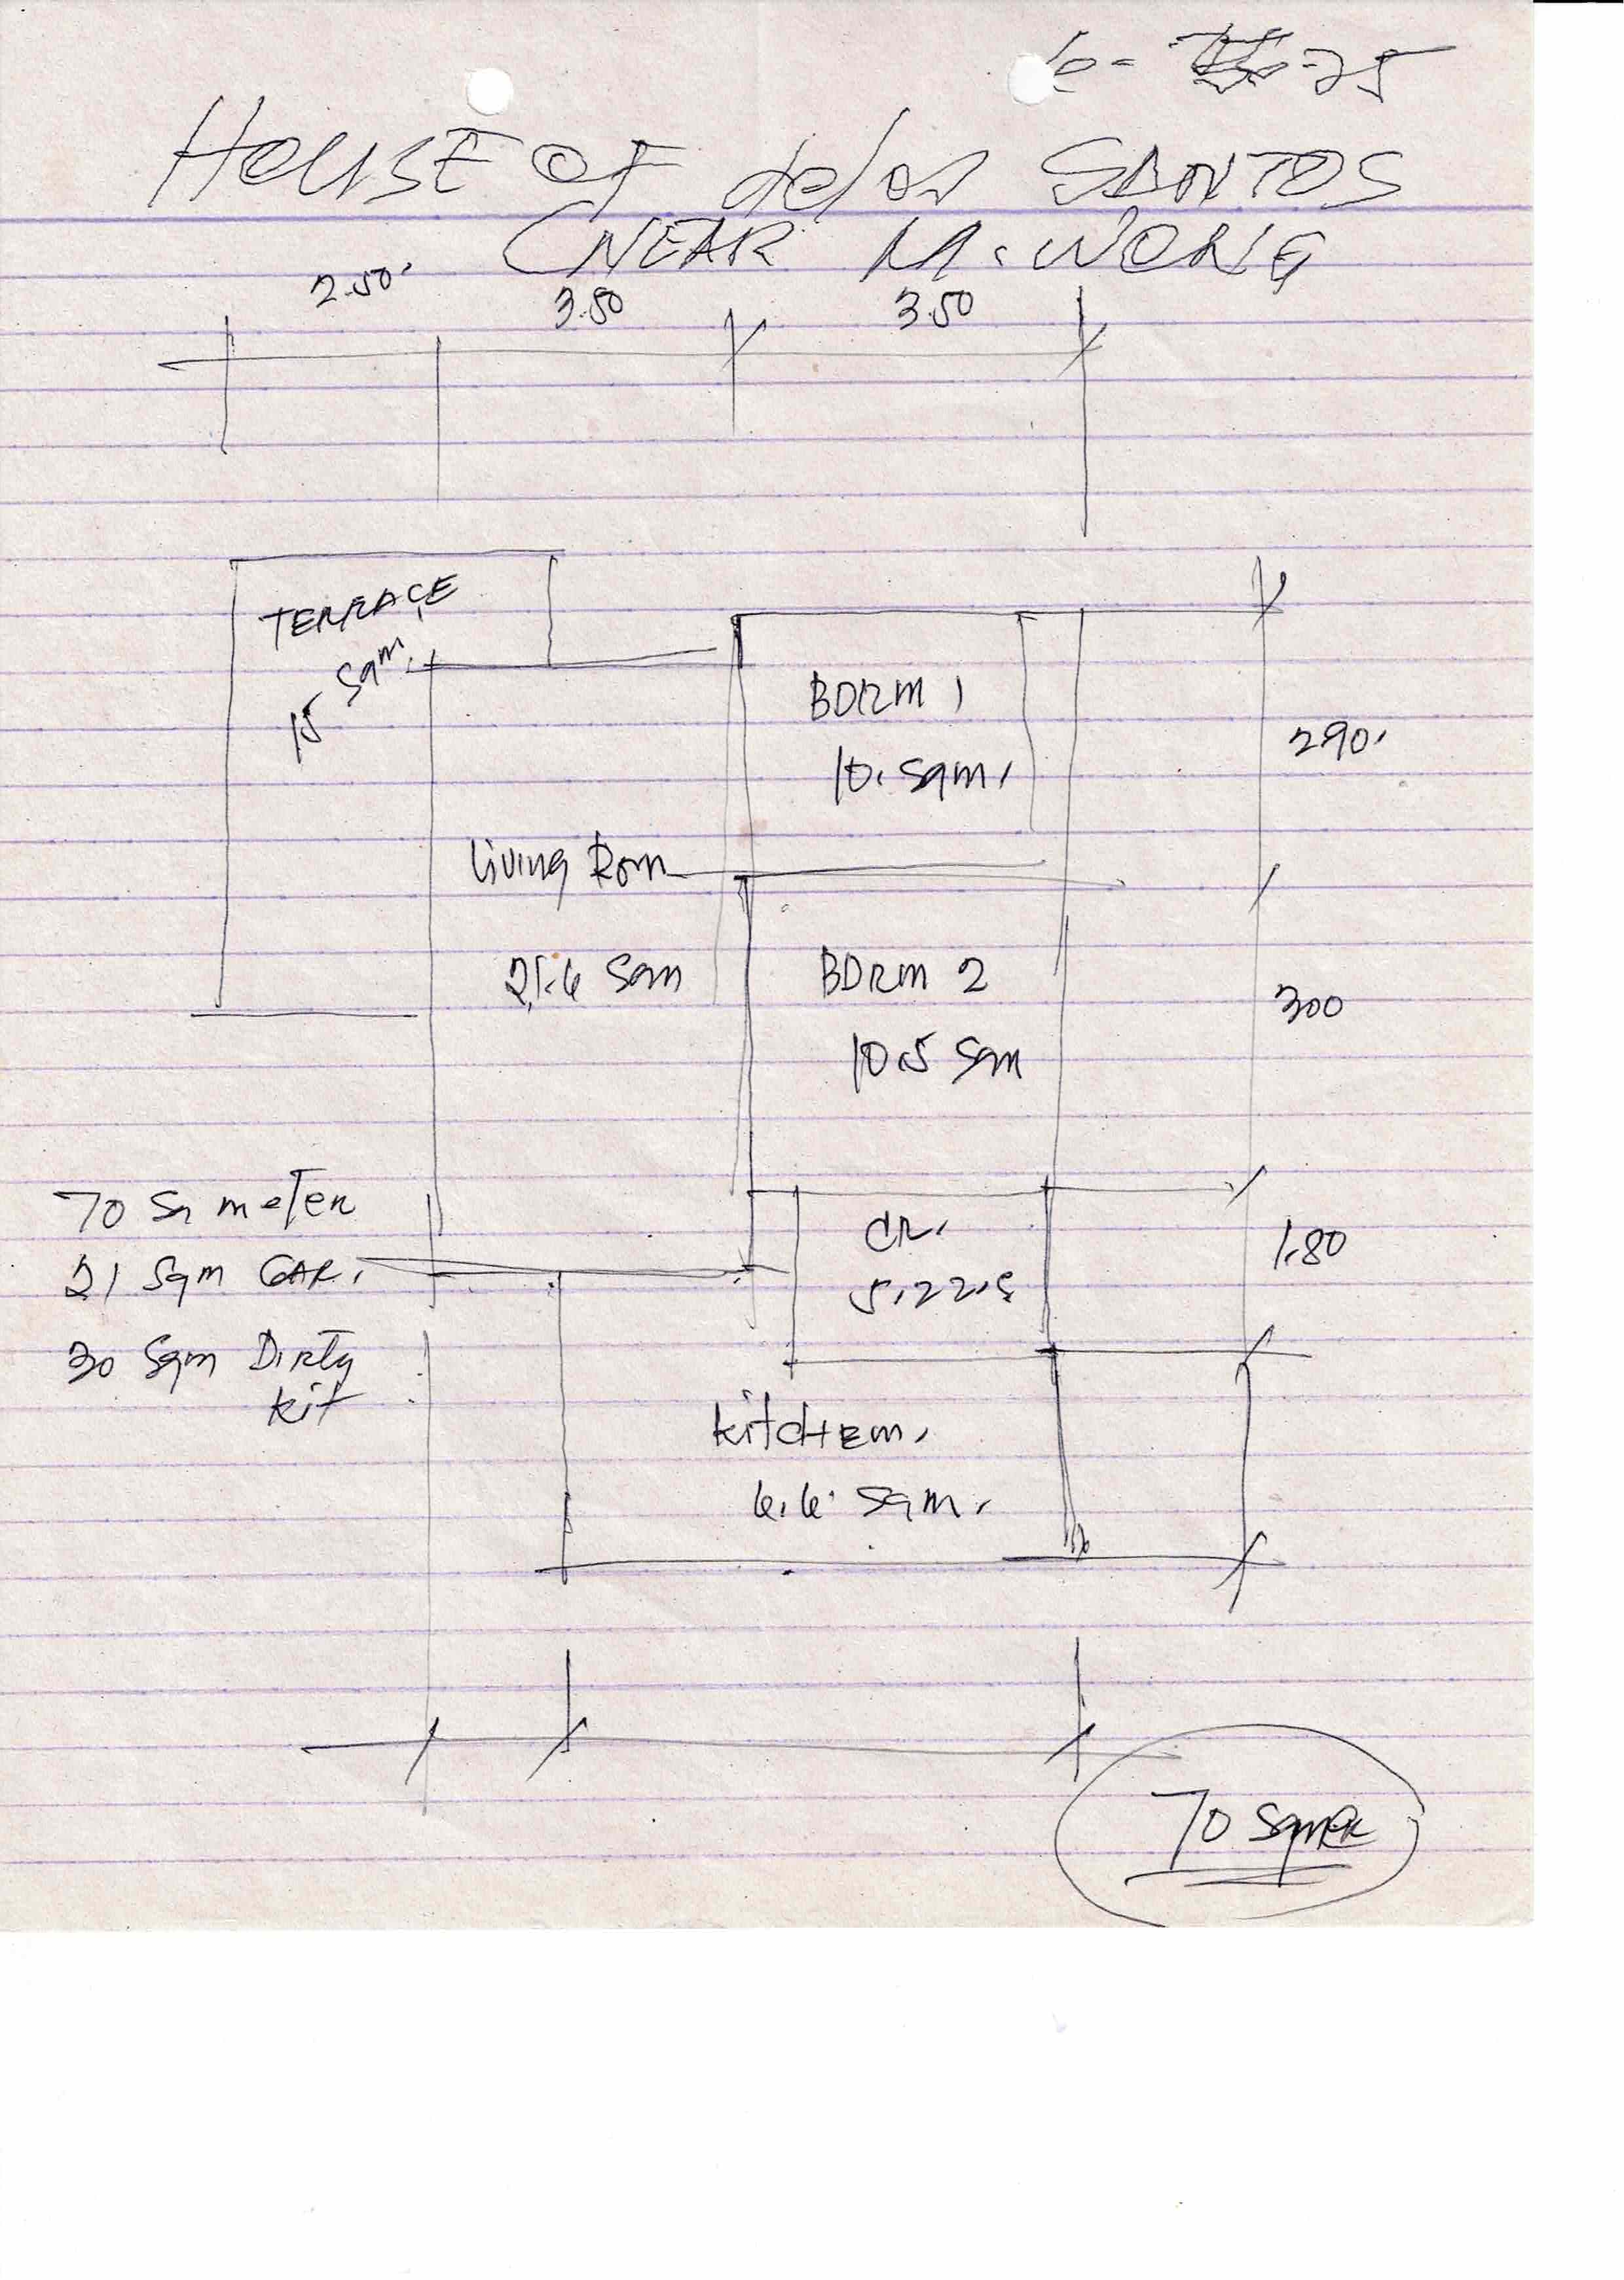 -25
HOUSE OF delos SANTOS
(NEAR M. WONG
2.50 3.50 3.50
TERRACE
15 sqm.
BDRM 1
10. sqm.
290
Living Rom
21.6 Sqm
BDRM 2
10.5 Sqm
300
70 Sq meter
21 Sqm GAR.
30 Sqm Dirty
kit
CR.
5.22.S
1.80
kitchEm.
6.6 sqm.
70